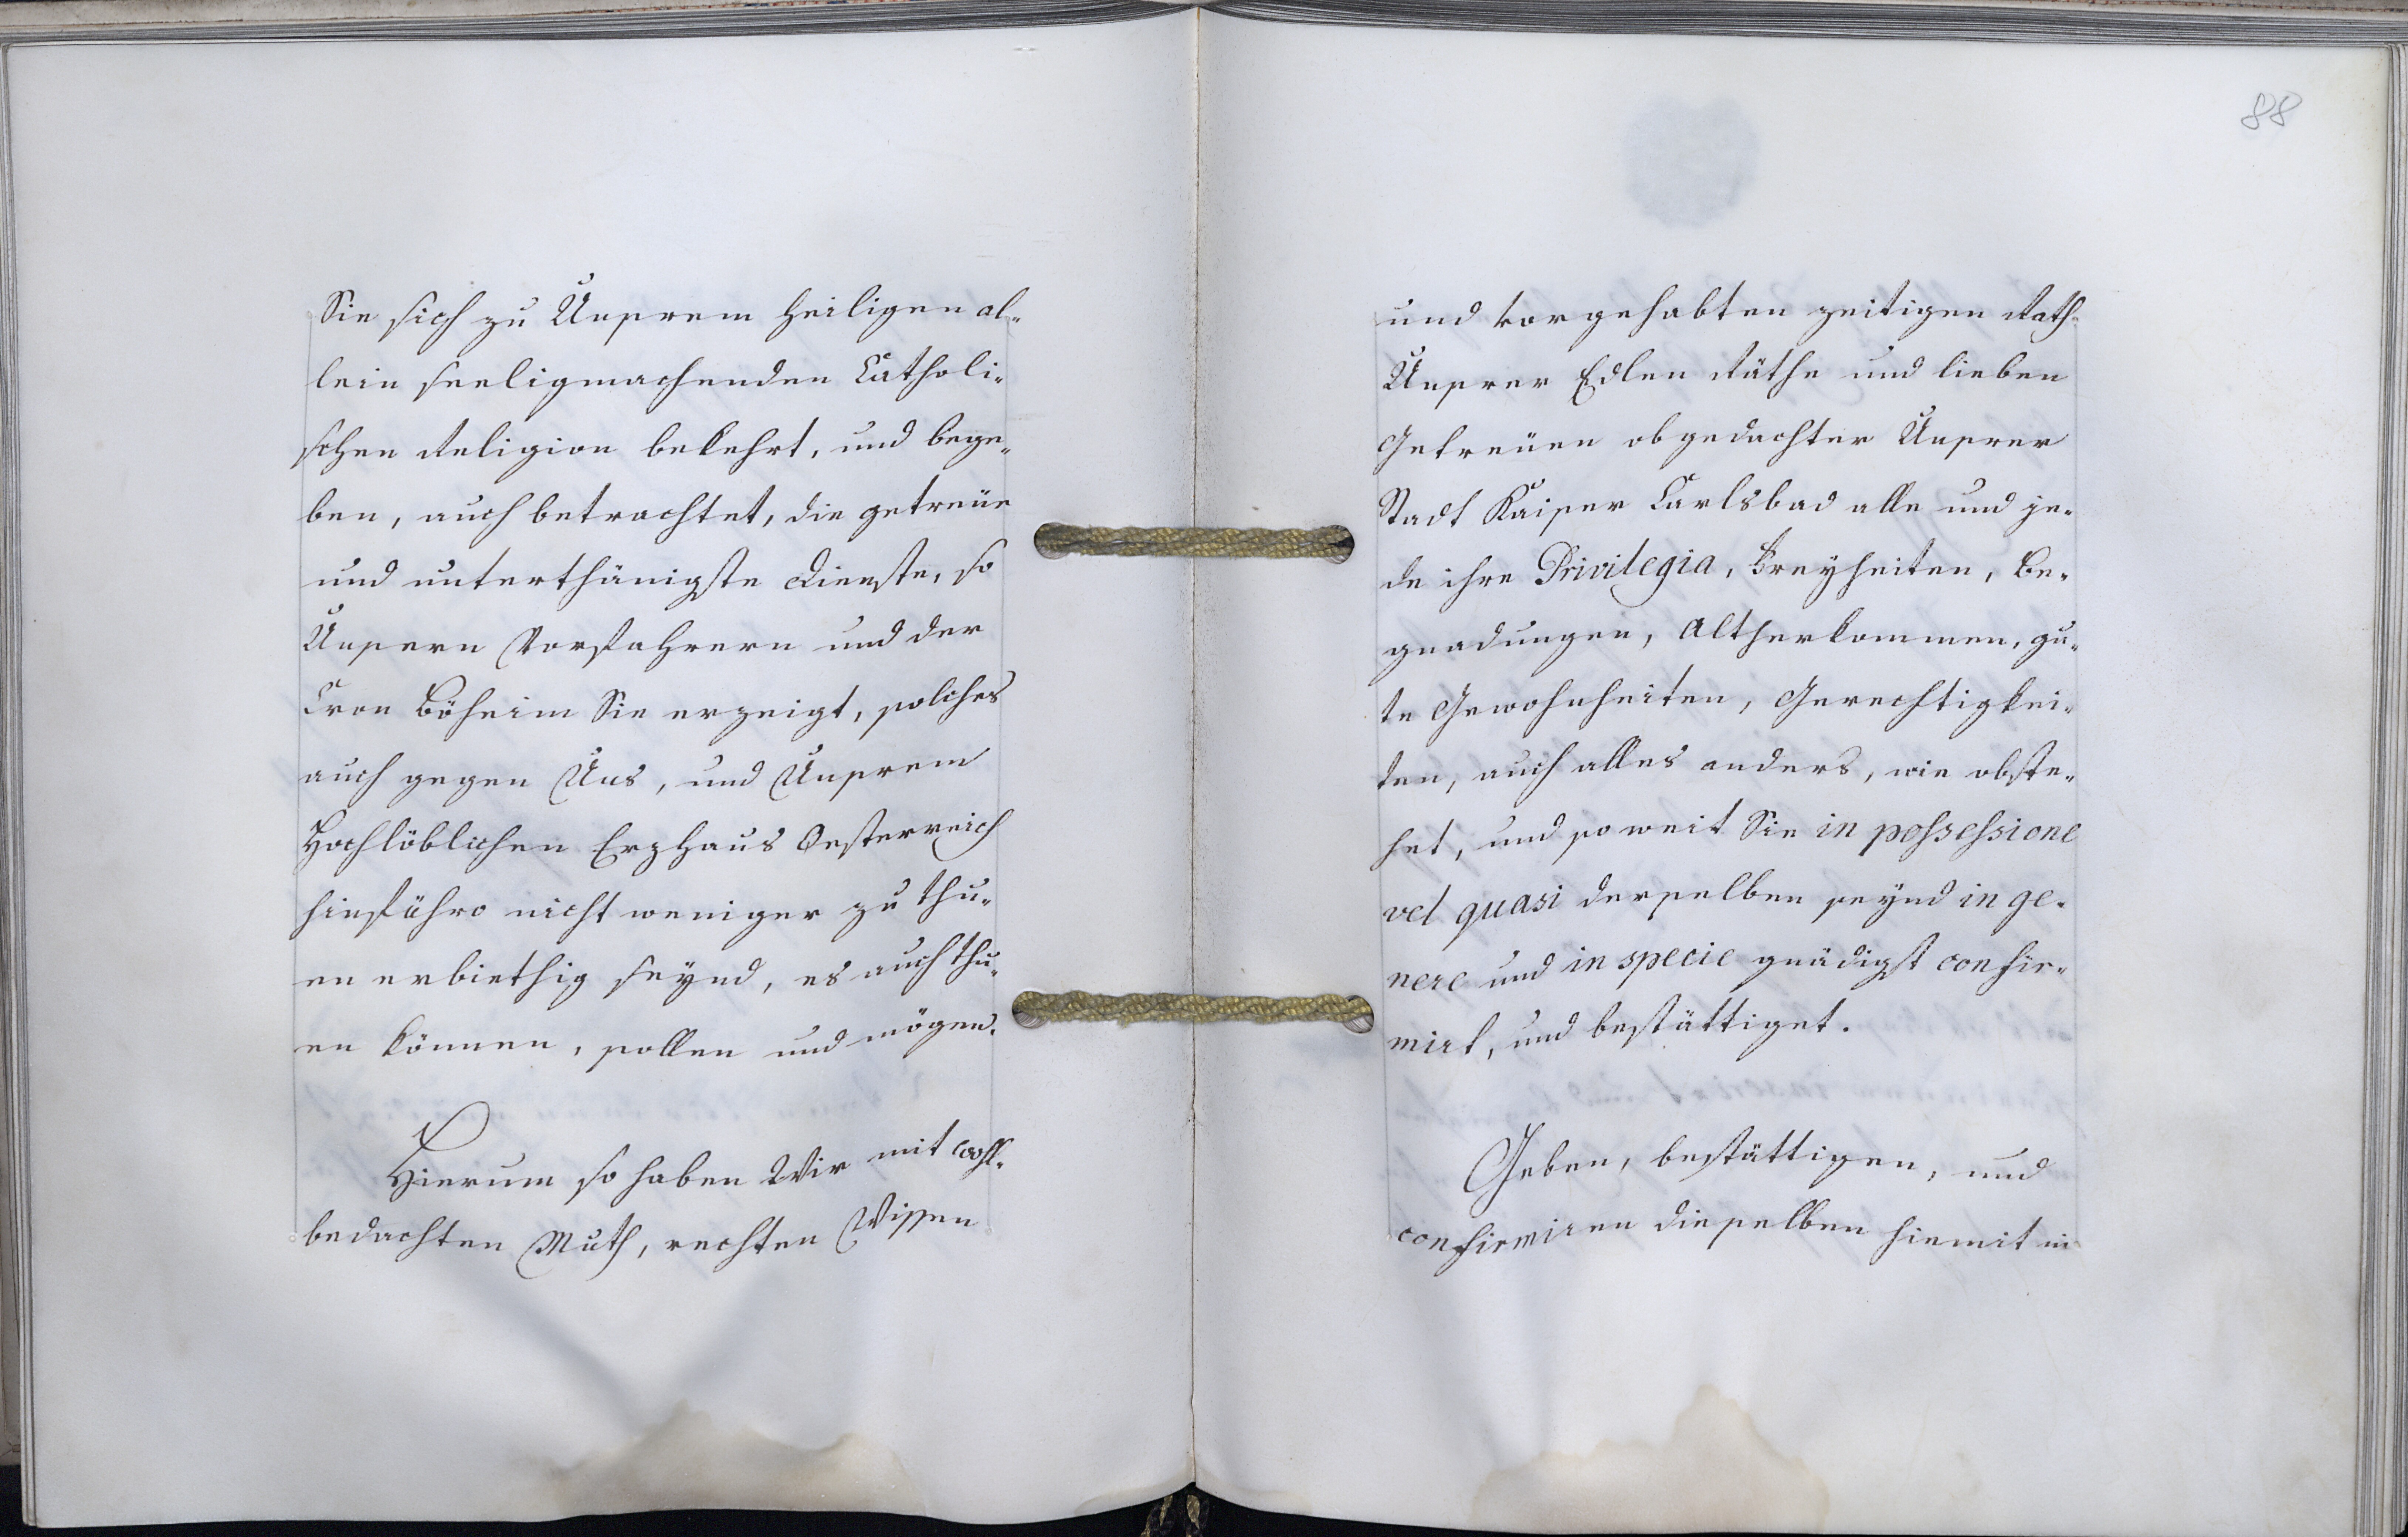 Sie sich zu Unserem heiligen al-
lein seeligmachenden Catholi-
schen Religion bekehrt, und bege-
ben, auch betrachtet, die getreüe
und unterthänigste Dienste, so
Unsern Vorfahrern und der
Cron Böheim Sie erzeigt, solches
auch gegen Uns, und Unserem
Hochlöblichen Erzhaus Oesterreich
hinführo nicht weniger zu thu-
en erbiethig seynd, es auch thu-
en können, sollen und mögen.
Hierum so haben Wir mit wohl-
bedachten Muth, rechten Wissen
88
und vorgehabten zeitigen Rath
Unserer Edlen Räthe und lieben
Getreüen obgedachter Unserer
Stadt Kaiser Carlsbad alle und je-
de ihre Privilegia, Freyheiten, Be-
gnadungen, Altherkommen, gu-
te Gewohnheiten, Gerechtigkei-
ten, auch alles anders, wie obste-
het, und so weit Sie in possessione
vel quasi derselben seynd in ge-
nere und in specie gnädigst confir-
mirt, und bestättiget.
Geben, bestättigen, und
confirmiren dieselben hiemit in